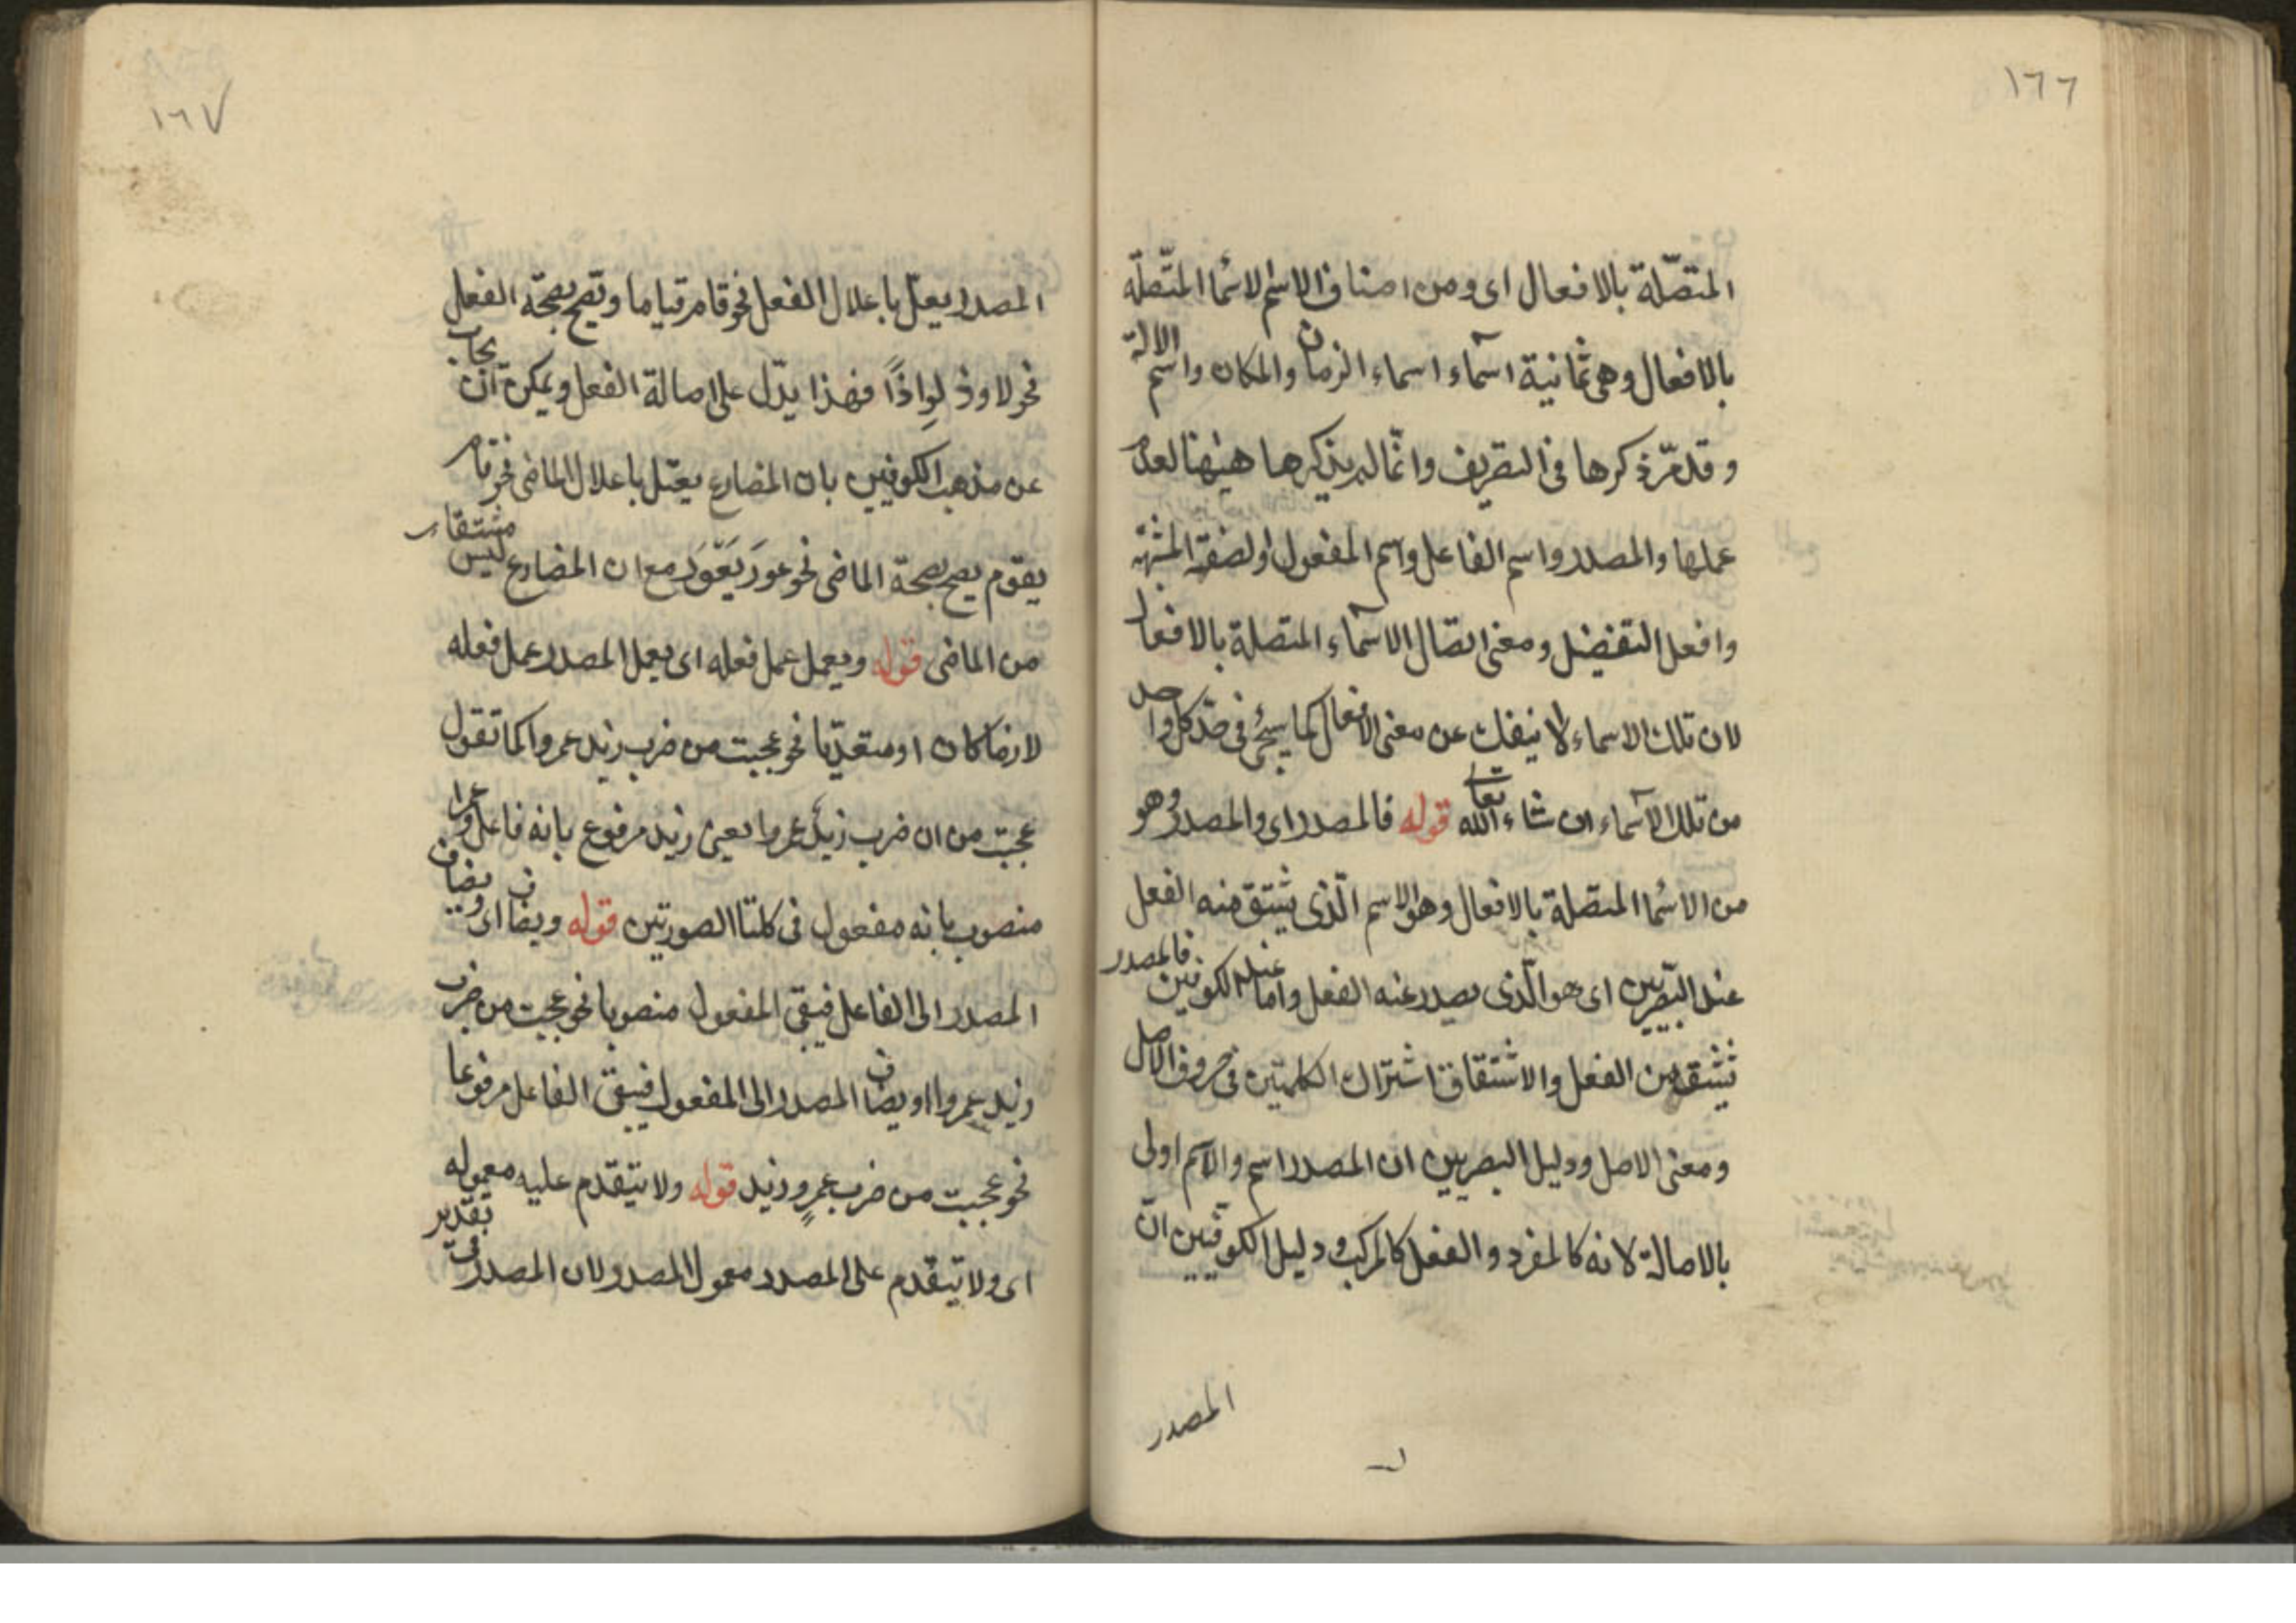 ١٦٦
المتصّلة بالافعال اى ومن اصناف الاسم الاسما المتّصلة
بالافعال وهى ثمانية اسماء اسماء الزمان والمكان واسم الالة
وقد مرّ ذكرها فى التصريف وانّما لم يذكرها هيهنا لعدم
عملها والمصدر واسم الفاعل واسم المفعول والصفة المشبّهة
وافعل التفضيل ومعنى اتصال الاسماء المتصلة بالافعال
لان تلك الاسماء لا ينفك عن معنى الافعال كما سيجئ فى حدّ كل واحد
من تلك الاسماء ان شاء الله تعالى قوله فالمصدر اى والمصدر وهو
من الاسما المتصّلة بالافعال وهو الاسم الّذى يشتق منه الفعل
عند البصريّين اى هو الّذى يصدر عنه الفعل واما عند الكوفيين فالمصدر
يشتق من الفعل والاشتقاق اشتراك الكلمتين فى حروف الاصل
ومعنى الاصل ودليل البصريين ان المصدر اسم والاسم اولى
بالاصالة لانه كالمفرد والفعل كالمركب ودليل الكوفيّين انّ
المصدر
١٦٧
المصدر يعتل باعلال الفعل نحو قام قياما ويصح بصحّة الفعل
نحو لاوذ لِواذًا فهذا يدّل على اصالة الفعل ويمكن ان يجاب
عن مذهب الكوفيين بان المضارع يعتل باعلال الماضى نحو قام
يقوم يصح بصحة الماضى نحو عور يَعْوَرُ مع ان المضارع ليس مشتقا
من الماضى قوله ويعمل عمل فعله اى يعمل المصدر عمل فعله
لازما كان او متعديّا نحو عجبت من ضرب زيد عمروا كما تقول
عجبت من ان ضرب زيدٌ عمروا يعنى زيد مرفوع بانه فاعل وعمرا
منصوب بانه مفعول فى كلتا الصورتين قوله ويضاف اى ويضاف
المصدر الى الفاعل فيبقى المفعول منصوبا نحو عجبت من ضرب
زيد عمروا او يضاف المصدر الى المفعول فيبقى الفاعل مرفوعا
نحو عجبت من ضرب عمرٍو زيد قوله ولا يتقدم عليه معموله
اى ولا يتقدم على المصدر معمول المصدر لان المصدر فى تقدير